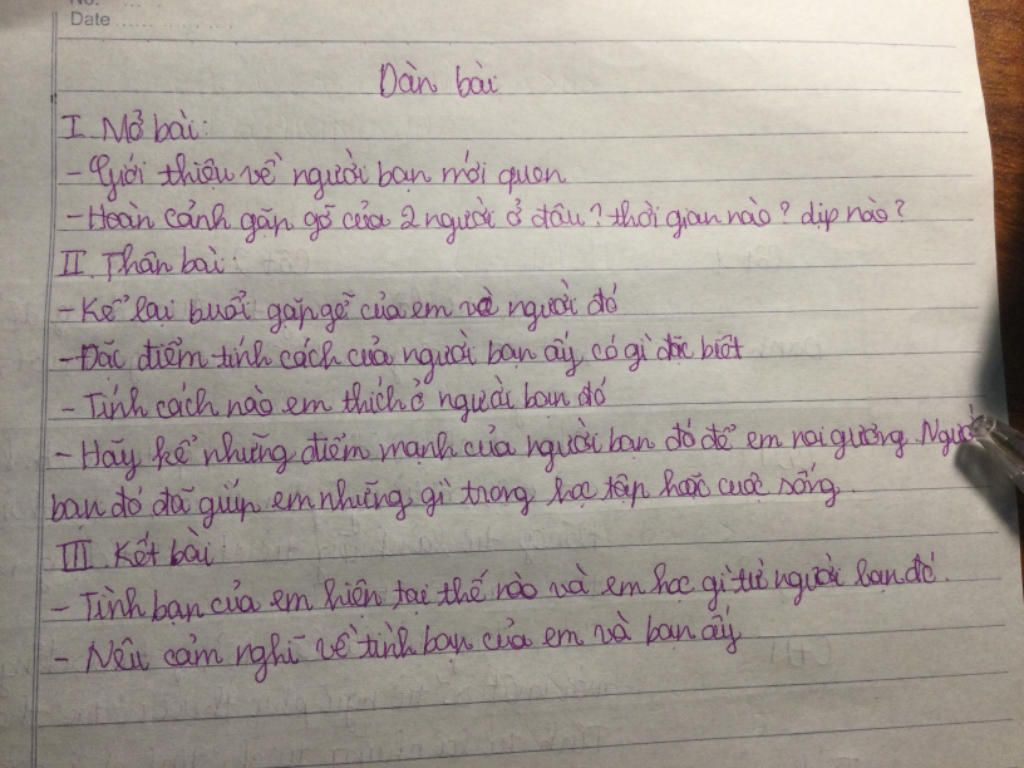 No:
Date
Dàn bài
I. Mở bài:
- Giới thiệu về người bạn mới quen
- Hoàn cảnh gặp gỡ của 2 người ở đâu? thời gian nào? dịp nào?
II. Thân bài:
- Kể lại buổi gặp gỡ của em và người đó
- Đặc điểm tính cách của người bạn ấy có gì đặc biệt
- Tính cách nào em thích ở người bạn đó
- Hãy kể những điểm mạnh của người bạn đó để em noi gương. Người
bạn đó đã giúp em những gì trong học tập hoặc cuộc sống.
III. Kết bài
- Tình bạn của em hiện tại thế nào và em học gì từ người bạn đó.
- Nêu cảm nghĩ về tình bạn của em và bạn ấy